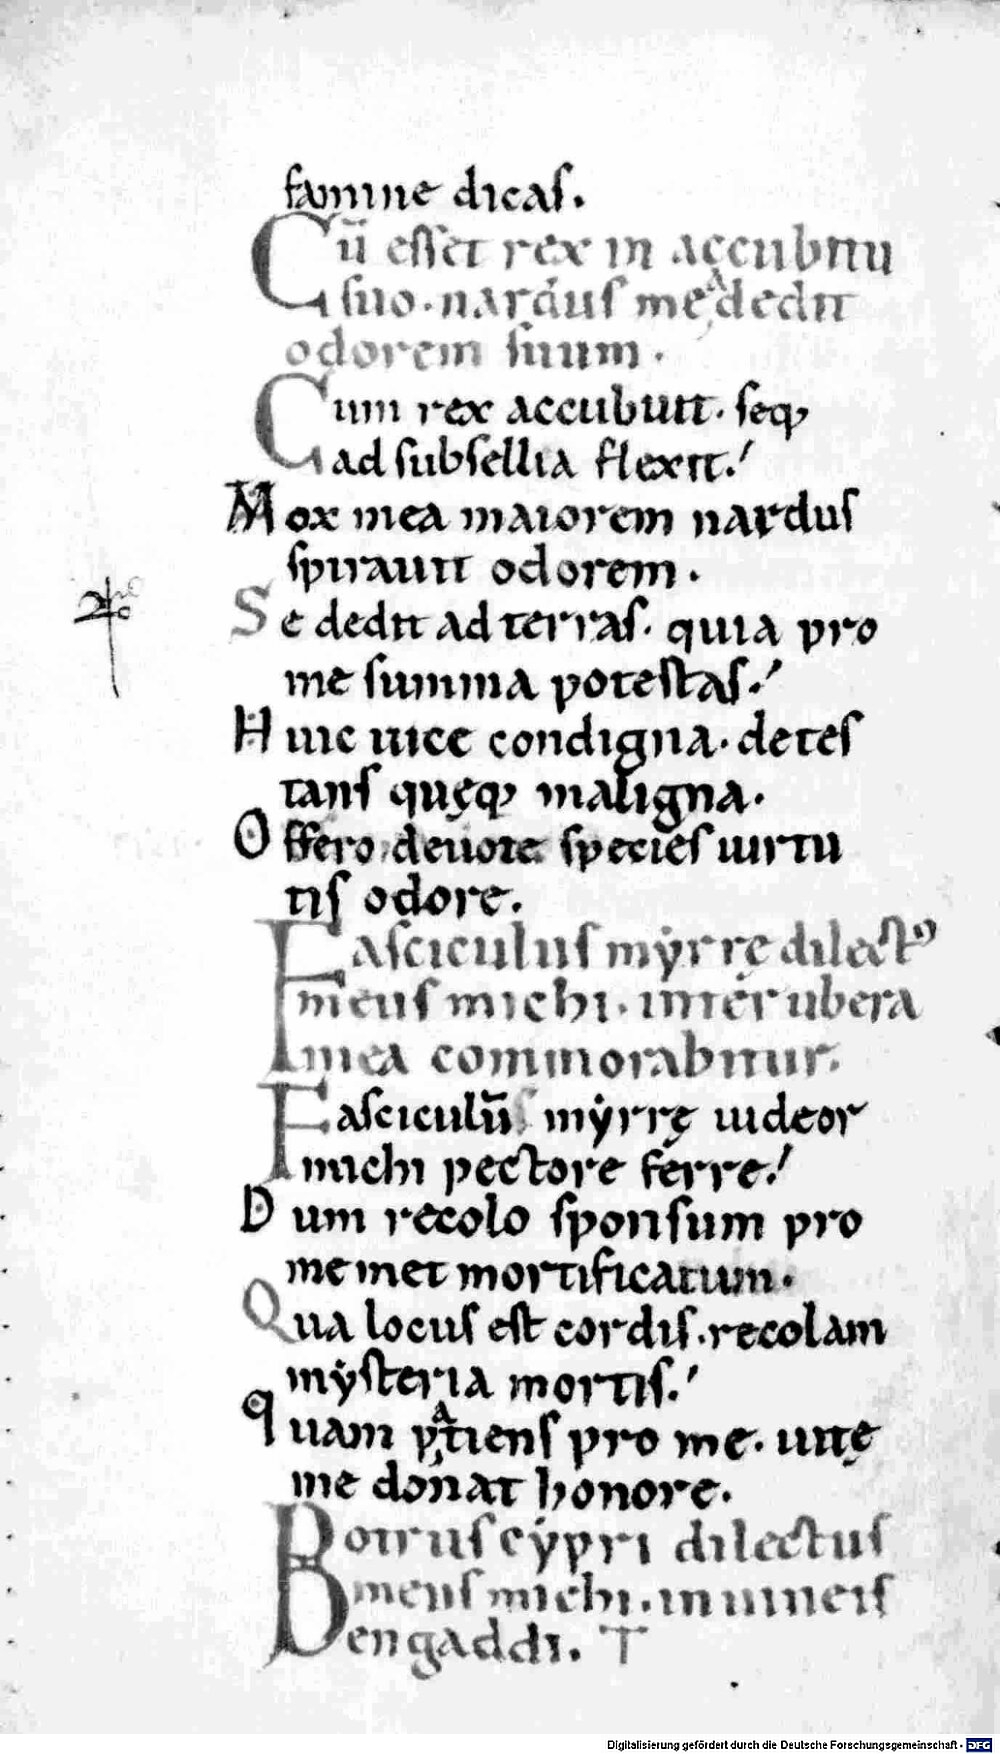 famine dicas.
Cū esset rex in accubitu
suo. nardus mea dedit
odorem suum.
Cum rex accubuit. seq;
ad subsellia flexit.
Mox mea maiorem nardus
spirauit odorem.
Se dedit ad terras. quia pro
me summa potestas.
Huic uice condigna. detes
tans quęq; maligna.
Offero deuote species uirtu
tis odore.
Fasciculus myrrę dilectꝰ
meus michi. inter ubera
mea commorabitur.
Fasciculū myrrę uideor
michi pectore ferre.
Dum recolo sponsum pro
memet mortificatum.
Qua locus est cordis. recolam
mysteria mortis.
quam patiens pro me. uitę
me donat honore.
Botrus cypri dilectus
meus michi. in uineis
engaddi. T
Digitalisierung gefördert durch die Deutsche Forschungsgemeinschaft - DFG